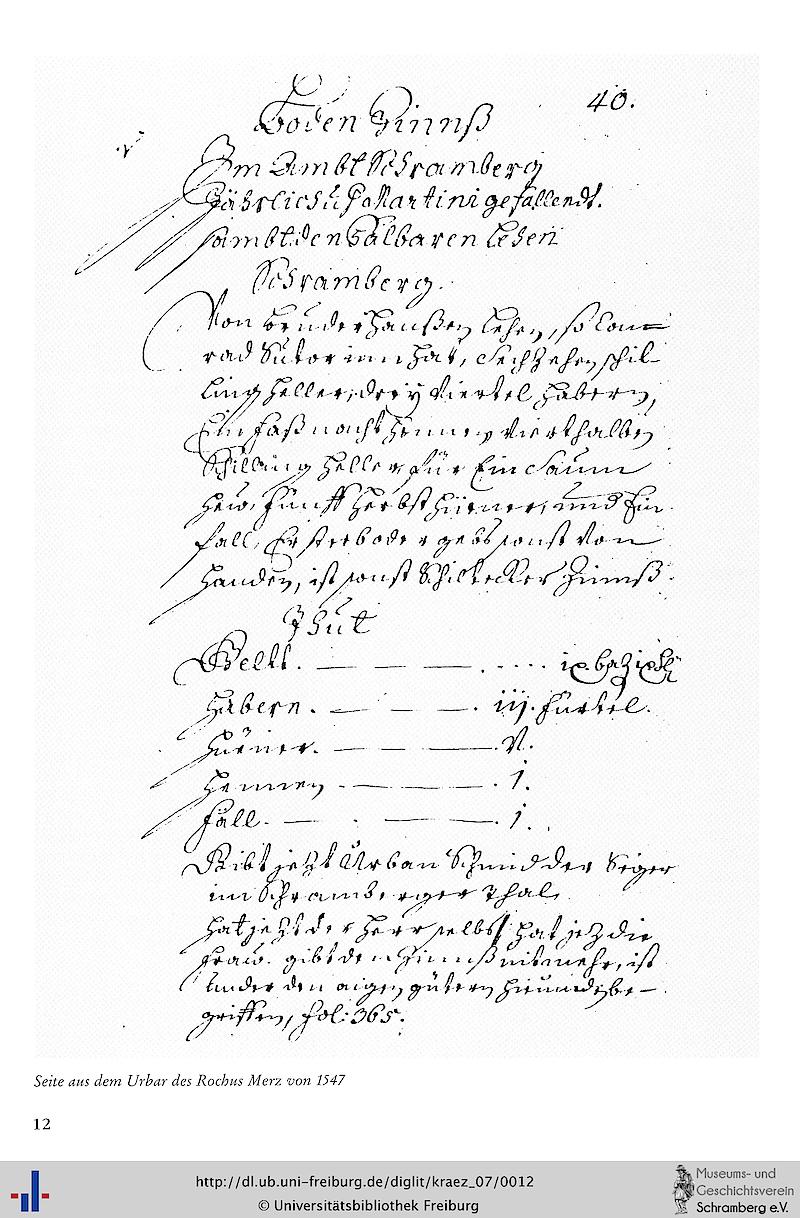 40.
Boden Zinnß
Im Ambt Schramberg
Jährlich uf Martini gefallendt.
sambt den Fälbaren Lehen
Schramberg.
Von Bruderhanßen Lehen, so Con-
rad Sutor innhat, Sechzehen schil-
ling heller, drey Viertel habern,
Ein Faßnacht hennen vierthalben
Schilling heller für Ein Saum
hew, fünff herbst hüener, und Ein
fall, Er sterb oder gebs sonst Von
handen, ist sonst Schiltecker Zinnß.
Thut
Gellt. — — — — . . . . . ix baz ix
habern. — — — . iij. Fürtel.
hüener. — — — . V.
hennen. — — — . 1.
fall. — . — — . 1.
Gibt jetzt Urban Schmid der Seger
im Schramberger Thal.
hat jetzt der Herr selbs / hat jez die
Fraw. gibt den Zinnß nit mehr, ist
under den aigen gütern hieunden be-
griffen, fol: 365.
Seite aus dem Urbar des Rochus Merz von 1547
12
http://dl.ub.uni-freiburg.de/diglit/kraez_07/0012
© Universitätsbibliothek Freiburg
Museums- und
Geschichtsverein
Schramberg e.V.